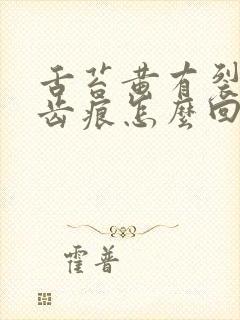 舌苔黄有裂
齿痕怎麼回
霍普